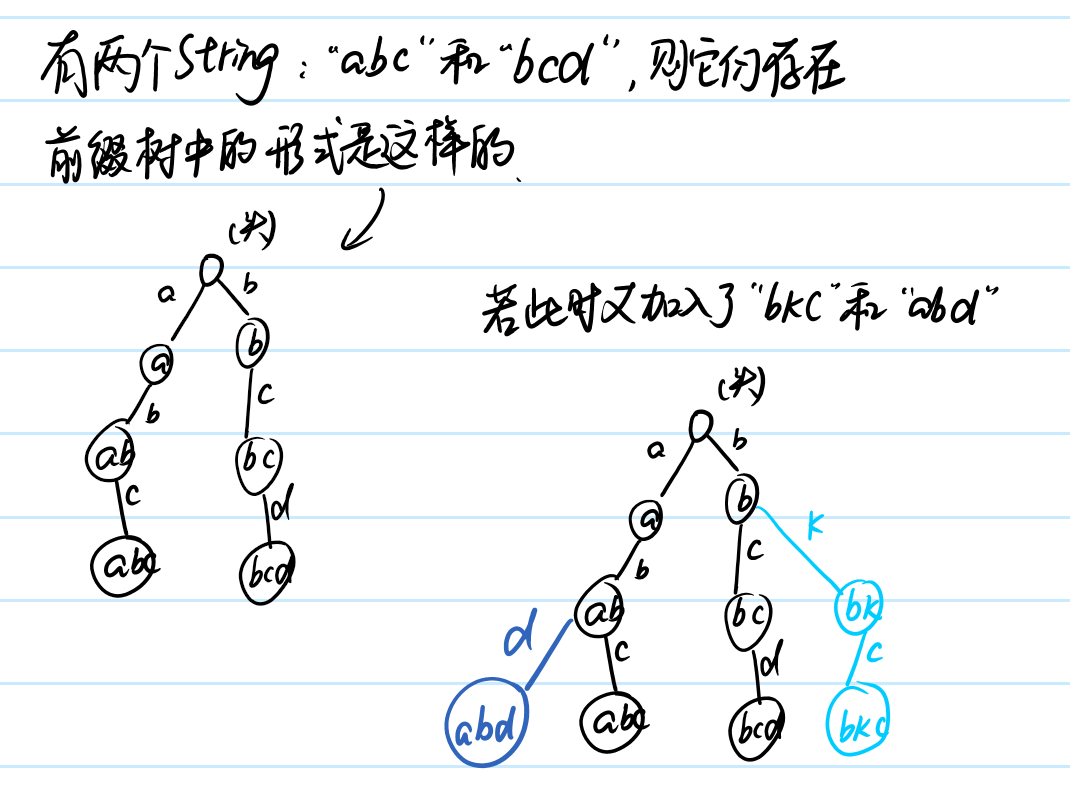 有两个String："abc"和"bcd"，则它们存在
前缀树中的形式是这样的、
(头)
a b
a b
b c
ab bc
c d
abc bcd
若此时又加入了"bkc"和"abd"
(头)
a b
a b
k
b c
ab bc bk
d c d c
abd abc bcd bkc